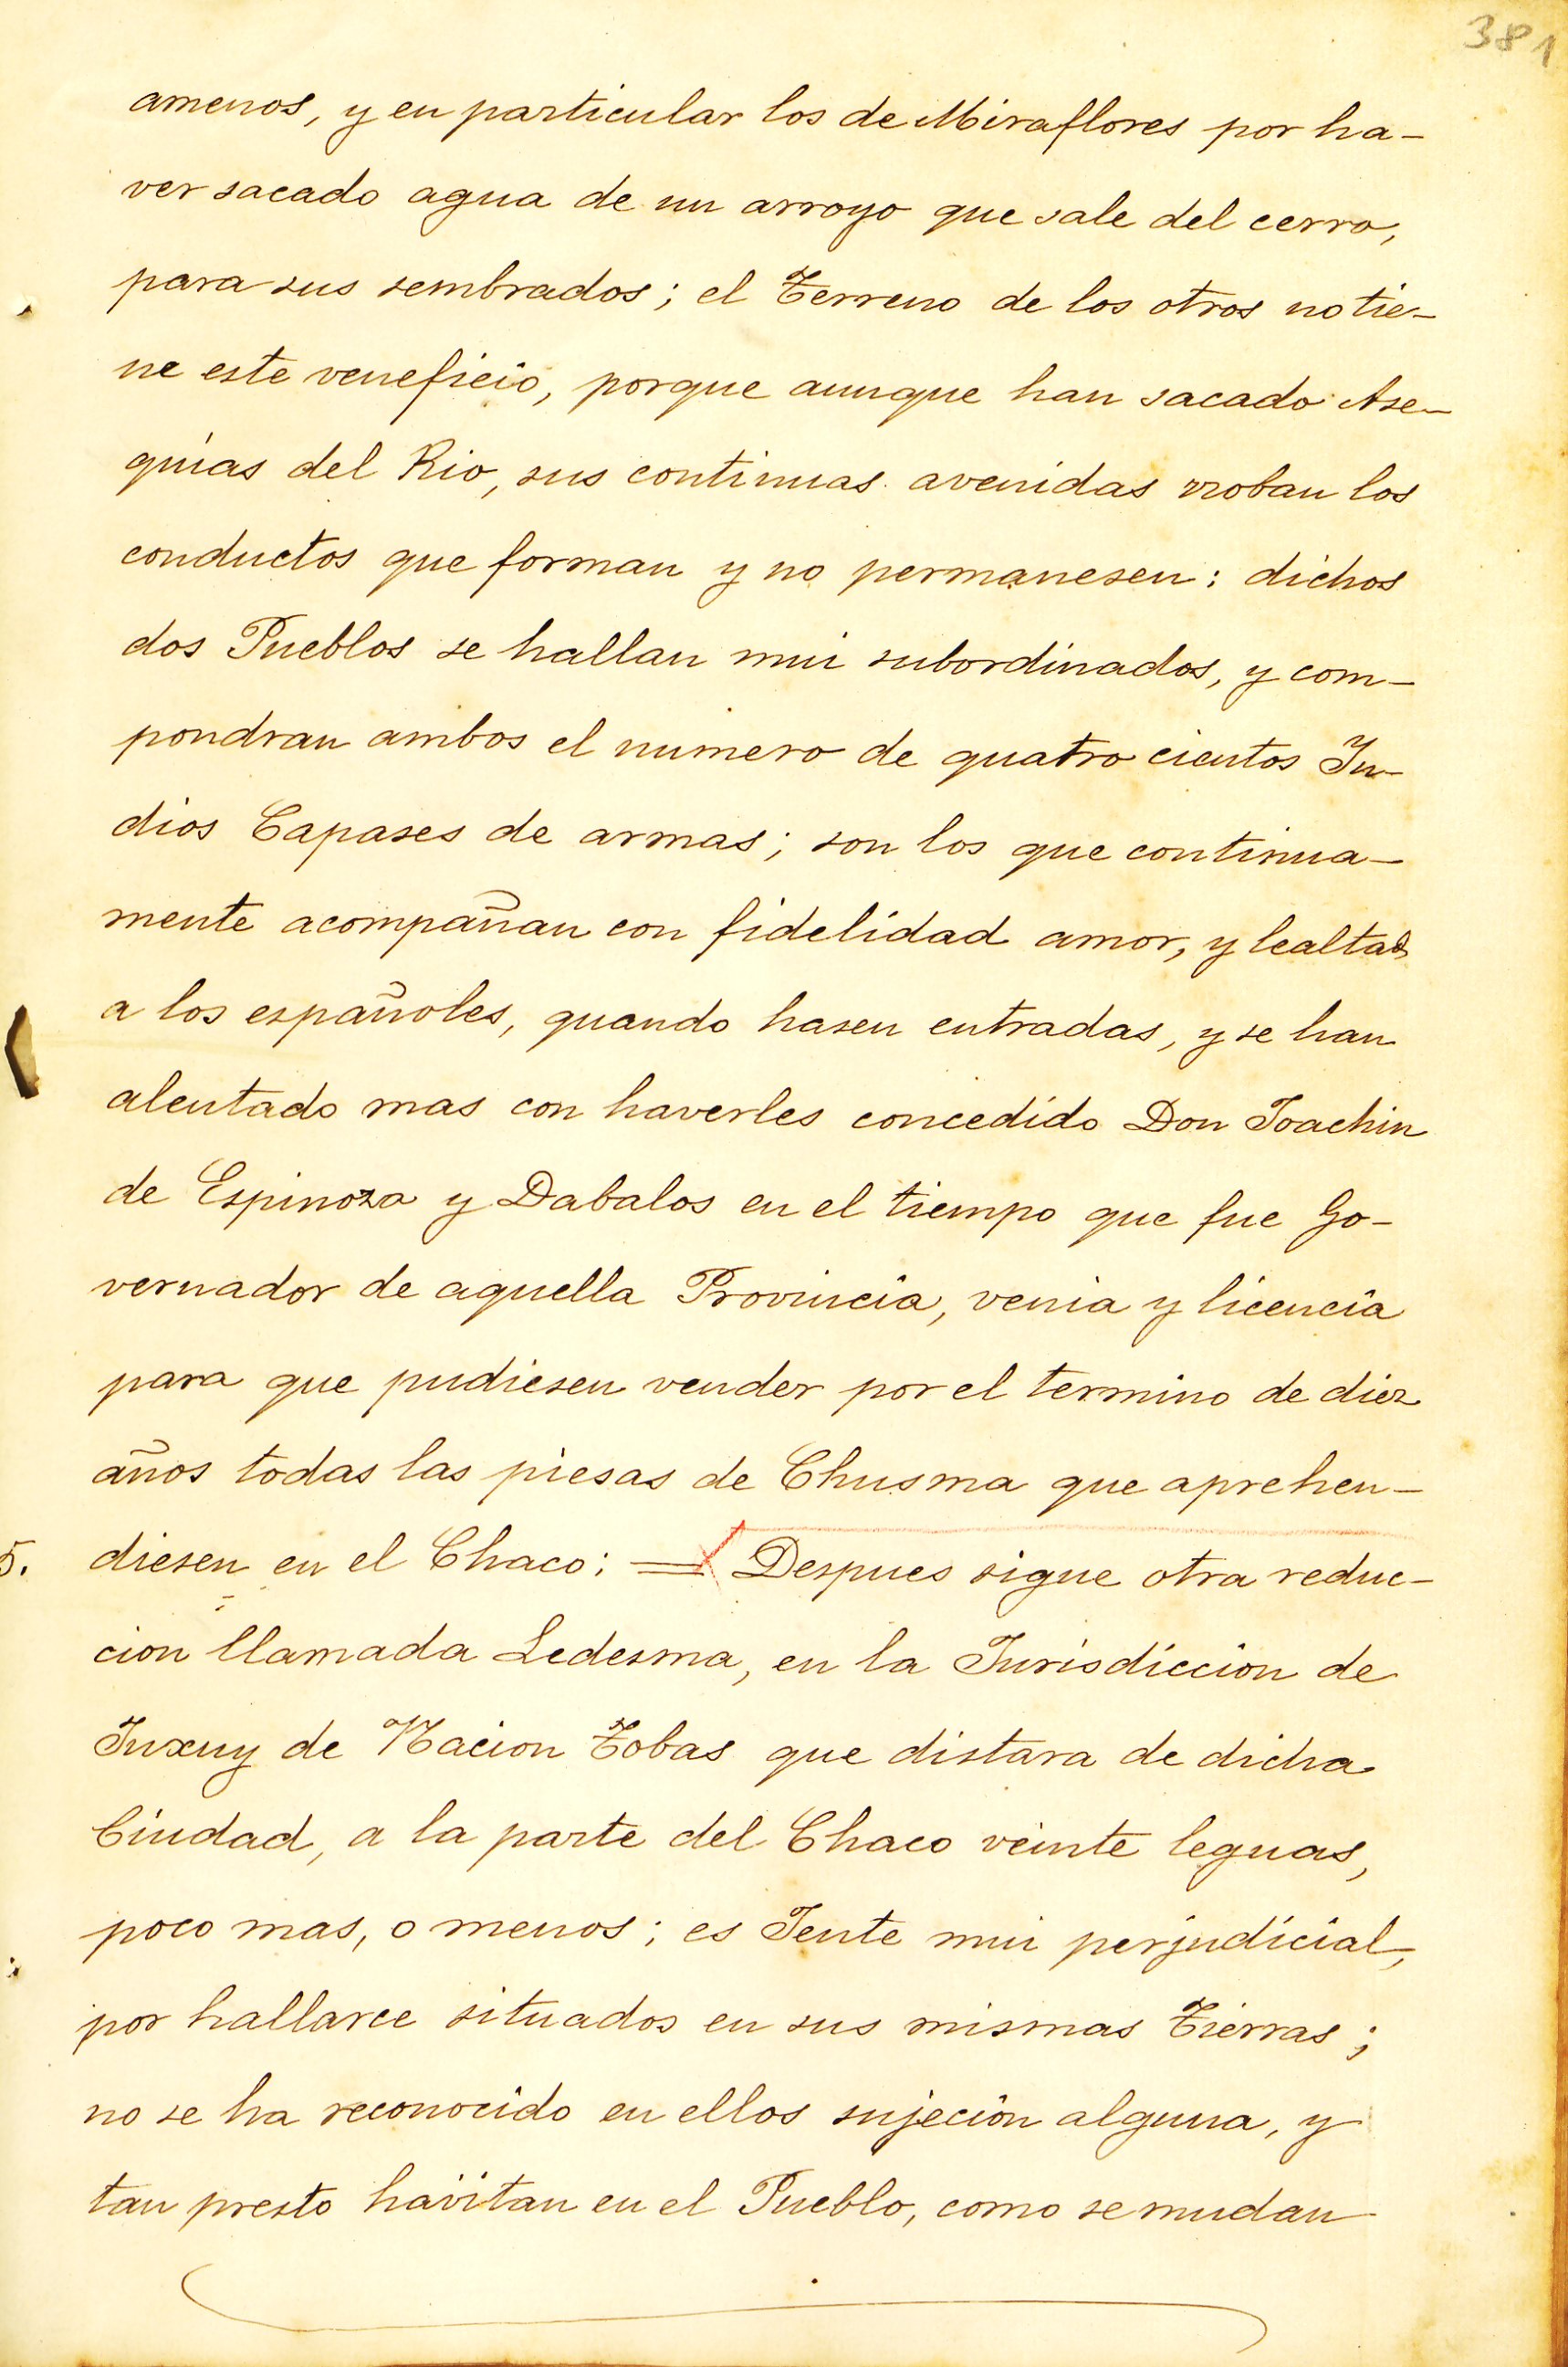 381
amenos, y en particular los de Miraflores por ha-
ver sacado agua de un arroyo que sale del cerro,
para sus sembrados; el Terreno de los otros no tie-
ne este veneficio, porque aunque han sacado Ase-
quias del Rio, sus continuas avenidas rroban los
conductos que forman y no permanesen: dichos
dos Pueblos se hallan mui subordinados, y com-
pondran ambos el numero de quatro cientos In-
dios Capases de armas; son los que continua-
mente acompañan con fidelidad amor, y lealtad
a los españoles, quando hasen entradas, y se han
alentado mas con haverles concedido Don Joachin
de Espinoza y Dabalos en el tiempo que fue Go-
vernador de aquella Provincia, venia y licencia
para que pudiesen vender por el termino de diez
años todas las piesas de Chusma que aprehen-
5. diesen en el Chaco; = Despues sigue otra reduc-
cion llamada Ledesma, en la Jurisdiccion de
Juxuy de Nacion Tobas que distara de dicha
Ciudad, a la parte del Chaco veinte leguas,
poco mas, o menos; es Jente mui perjudicial,
por hallarce situados en sus mismas Tierras;
no se ha reconocido en ellos sujecion alguna, y
tan presto havitan en el Pueblo, como se mudan